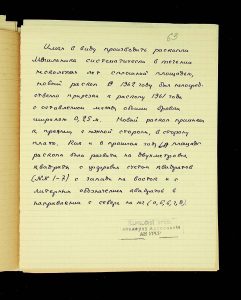 63
Имея в виду производить раскопки
систематически в течении
нескольких лет сплошной площадью,
новый раскоп в 1962 году был непосред-
ственно прирезан к раскопу 1961 года
с оставлением между обоими бровки
шириной 0,25 м. Новый раскоп примыкал
к прежнему с южной стороны, в сторону
Как и в прошлом году площадь
раскопа была разбита на двухметровые
квадраты с цифровым счетом квадратов
(№№ 1-7) с запада на восток и с
литерным обозначением квадратов в
направлении с севера на юг (а, б, в, г, д)